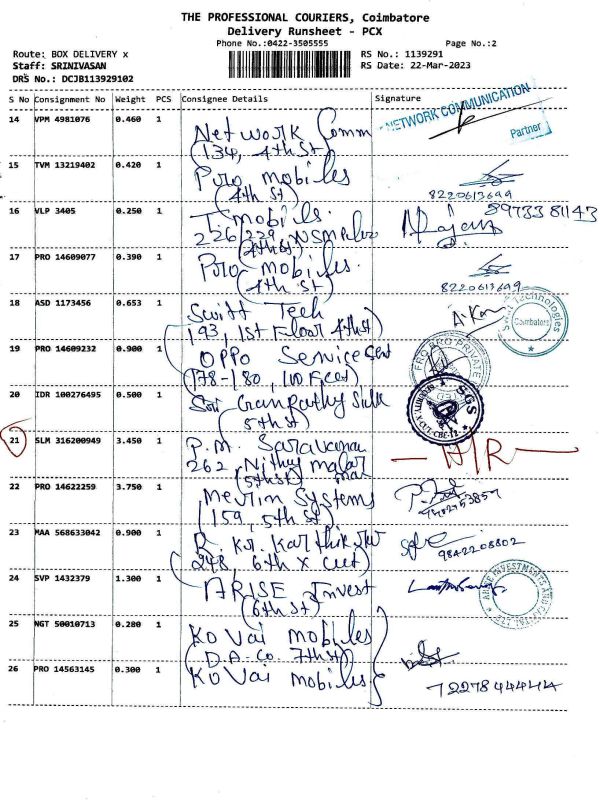 THE PROFESSIONAL COURIERS, Coimbatore
Delivery Runsheet - PCX
Phone No.:0422-3505555
Page No.:2
Route: BOX DELIVERY x
Staff: SRINIVASAN
DRS No.: DCJB113929102
RS No.: 1139291
RS Date: 22-Mar-2023
S No Consignment No Weight PCS Consignee Details Signature
14 VPM 4981076 0.460 1 Network Comm
(134, 4th St)
NETWORK COMMUNICATION
Partner
15 TVM 13219402 0.420 1 Pro mobiles
(4th St)
8220613699
16 VLP 3405 0.250 1 T mobiles.
226/229 NSM
(4th St)
89733 81143
17 PRO 14609077 0.390 1 Pro mobiles.
(4th St)
8220613699
18 ASD 1173456 0.653 1 Swift Tech
193, 1st Floor 4th St)
Technologies
Coimbatore
19 PRO 14609232 0.900 1 OPPO Service Cent
(178-180, 100 Feet)
PRO PRIVATE
20 IDR 100276495 0.500 1 Sri Ganpathy Silk
(5th St)
SGS
21 SLM 316200949 3.450 1 P.M. Saravanan
262, Nithy malar
(5th St)
22 PRO 14622259 3.750 1 Merlin Systems
(159, 5th St)
23 MAA 568633042 0.900 1 R. Karthik
248, 6th X Cut)
9842208802
24 SVP 1432379 1.300 1 ARISE Invest
(6th St)
25 NGT 50010713 0.280 1 KoVai mobiles
(D.A-Co 7th St)
26 PRO 14563145 0.300 1 KoVai mobiles
7227844444